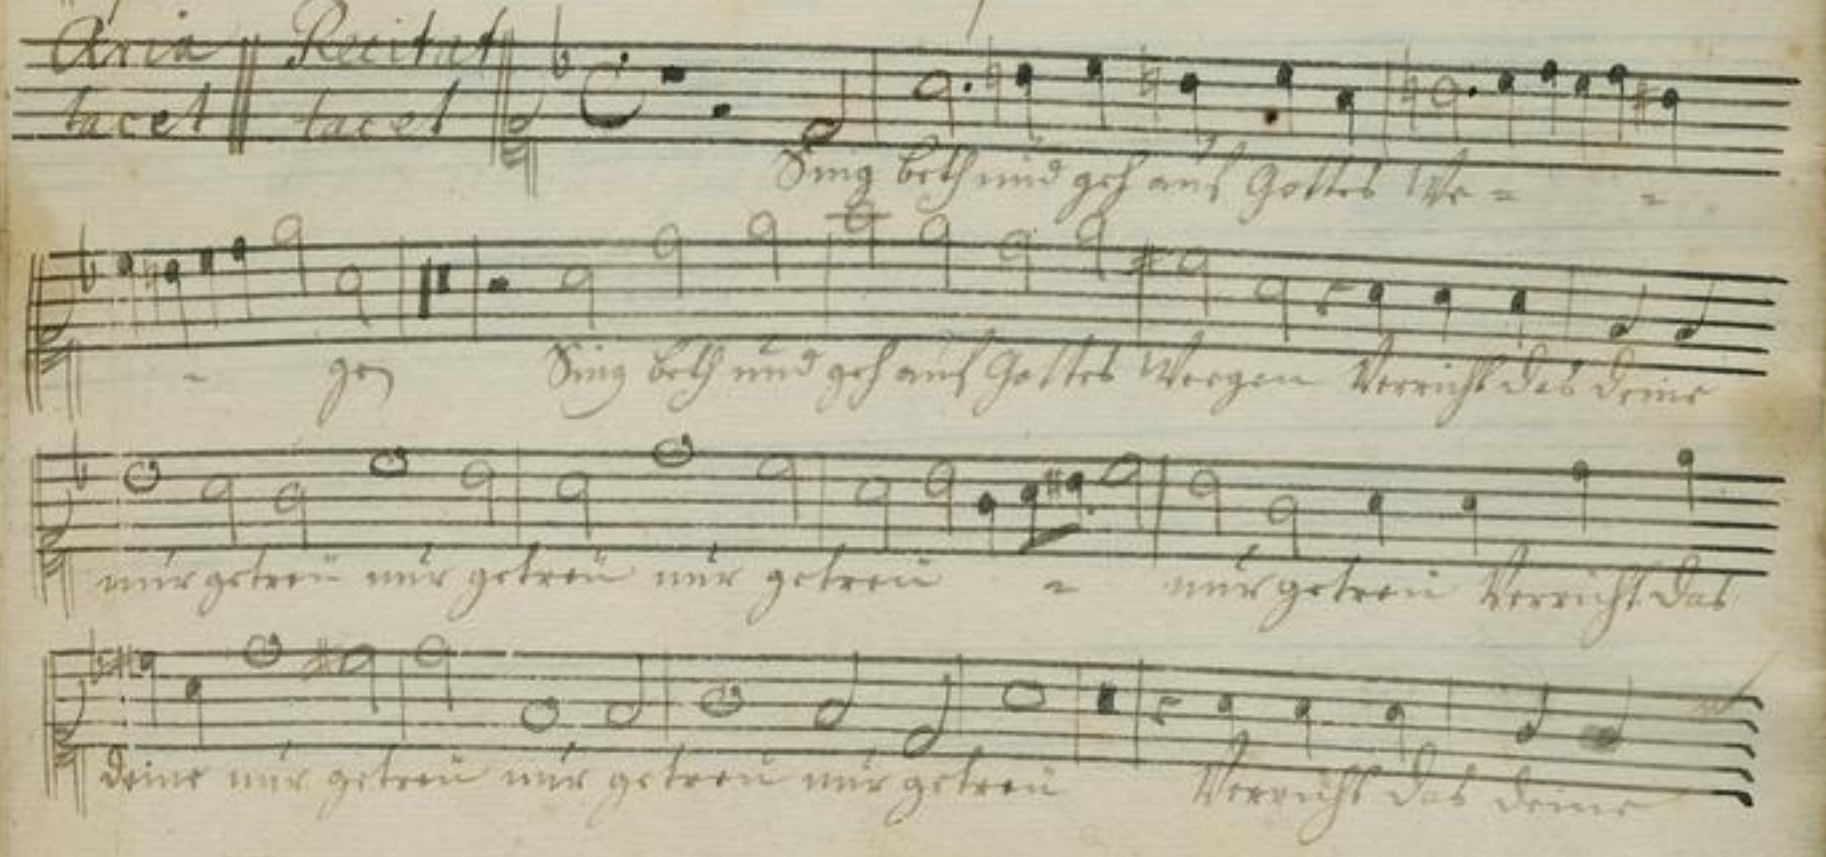 Aria Recitat
tacet tacet
Sing beth und geh auf Gottes We - -
- gen Sing beth und geh auf Gottes Weegen Verricht das deine
nur getreu nur getreu nur getreu - nur getreu Verricht das
deine nur getreu nur getreu nur getreu Verricht das deine